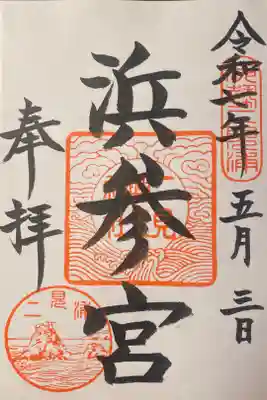 令和七年 五月 三日
浜参宮
奉拝
二見浦